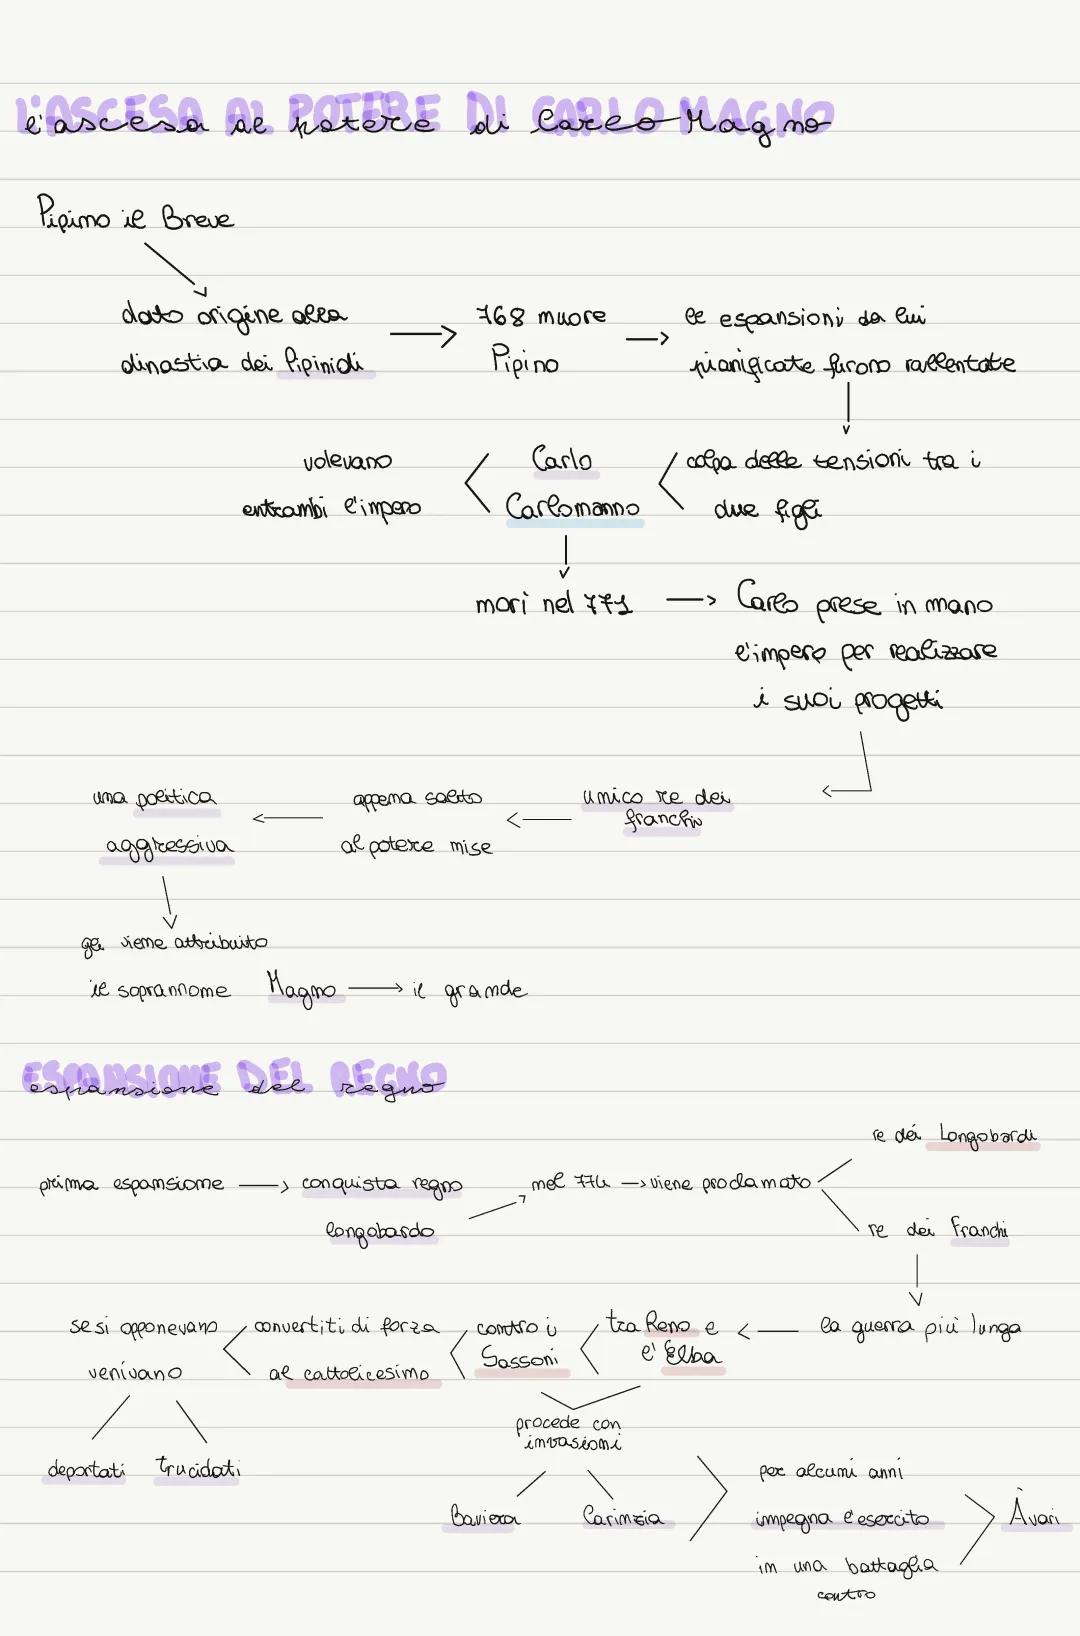 L'ASCESA AL POTERE DI CARLO MAGNO
l'ascesa al potere di Carlo Magno
Pipino il Breve
dato origine alla
dinastia dei Pipinidi
768 muore
Pipino
le espansioni da lui
pianificate furono rallentate
volevano
entrambi l'impero
Carlo
Carlomanno
colpa delle tensioni tra i
due figli
morì nel 771
Carlo prese in mano
l'impero per realizzare
i suoi progetti
una politica
aggressiva
appena salito
al potere mise
unico re dei
franchi
gli viene attribuito
il soprannome Magno → il grande
ESPANSIONE DEL REGNO
espansione del regno
re dei Longobardi
prima espansione → conquista regno
longobardo
nel 774 → viene proclamato
re dei Franchi
se si opponevano
venivano
convertiti di forza
al cattolicesimo
contro i
Sassoni
tra Reno e
l'Elba
la guerra più lunga
procede con
invasioni
deportati trucidati
Baviera Carinzia
per alcuni anni
impegna l'esercito
in una battaglia
contro
Àvari